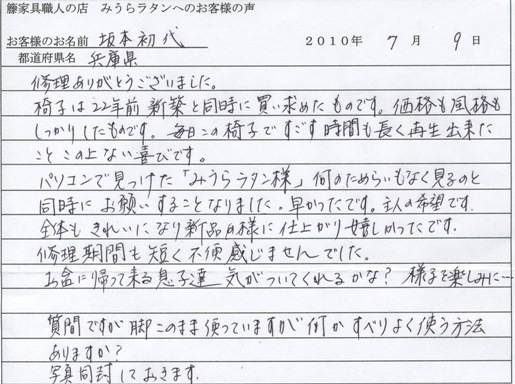 籐家具職人の店　みうらラタンへのお客様の声
お客様のお名前 坂本初代 2010年 7月 9日
都道府県名 兵庫県
修理ありがとうございました。
椅子は22年前新築と同時に買い求めたものです。価格も風格も
しっかりしたものです。毎日この椅子ですごす時間も長く再生出来た
ことこの上ない喜びです。
パソコンで見つけた「みうらラタン様」何のためらいもなく見るのと
同時にお願いすることなりました。早かったです。主人の希望です。
全体もきれいになり新品同様に仕上がり嬉しかったです。
修理期間も短く不便感じませんでした。
お盆に帰って来る息子達 気がついてくれるかな? 様子を楽しみに…
質問ですが脚このまま使っていますが何かすべりよく使う方法
ありますか?
写真同封しておきます。